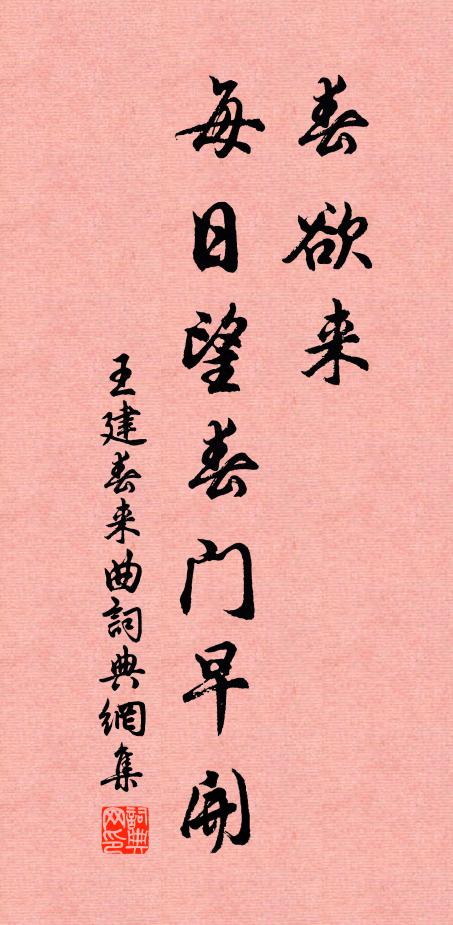 春欲来
每日望春门早开
王建春来曲詞典網集
詞典网印